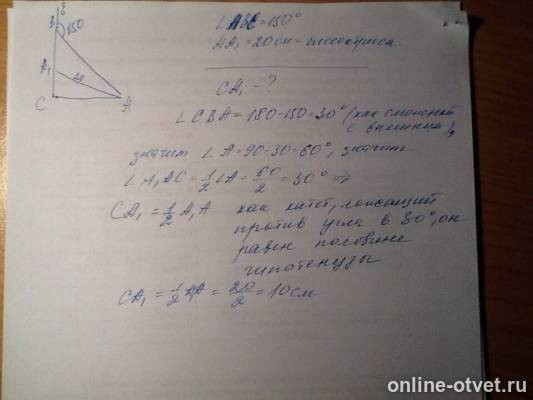 E
B 150
A₁ 20
C A
∠ABE = 150°
AA₁ = 20 см - биссектриса
CA₁ - ?
∠CBA = 180-150 = 30° (как смежный
с внешним),
значит ∠A = 90-30 = 60°, значит
∠A₁AC = 1/2 ∠A = 60/2 = 30° ⇒
CA₁ = 1/2 A₁A как катет, лежащий
против угла в 30°, он
равен половине
гипотенузы
CA₁ = 1/2 A₁A = 20/2 = 10 см
online-otvet.ru